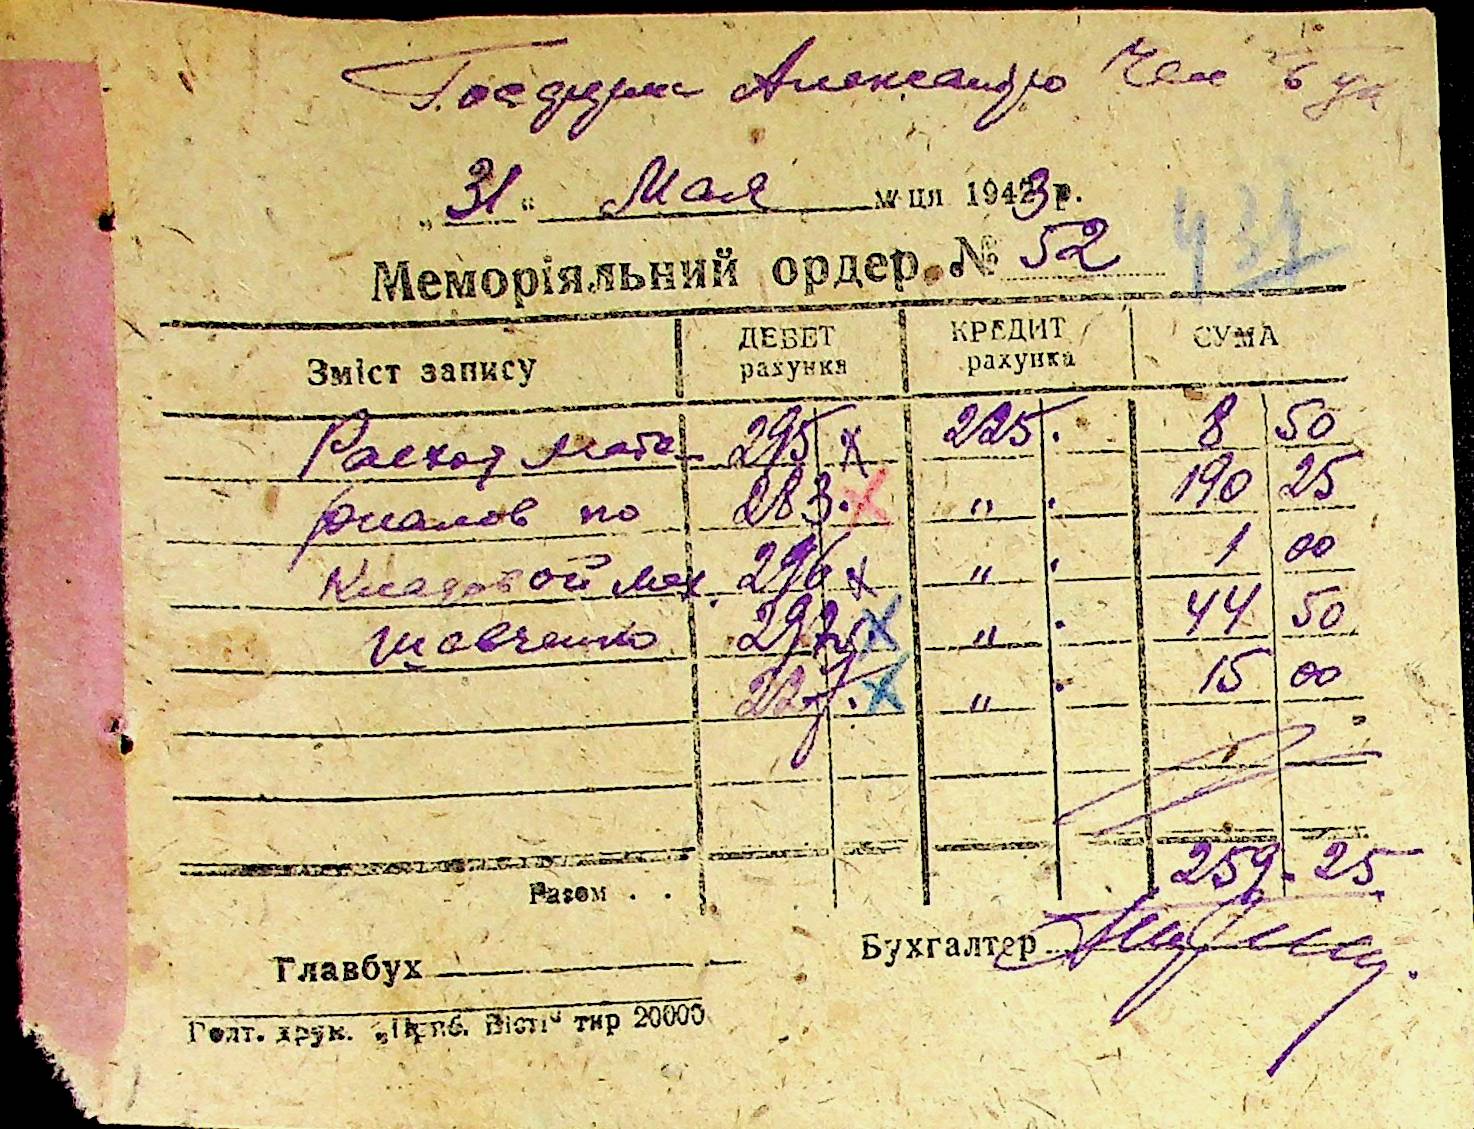 Александро
„31“ Мая м-ця 1943 р.
431
Меморіяльний ордер № 52
Зміст запису ДЕБЕТ рахунка КРЕДИТ рахунка СУМА
Расход мате- 295 х 225. 8 50
риалов по 283. х „ . 190 25
Кладовой мех. 296 х „ . 1 00
Шевченко 297 х „ . 44 50
227. х „ . 15 00
Разом . . 259-25.
Главбух Бухгалтер
Голт. друк. „Приб. Вісті“ тир 20000